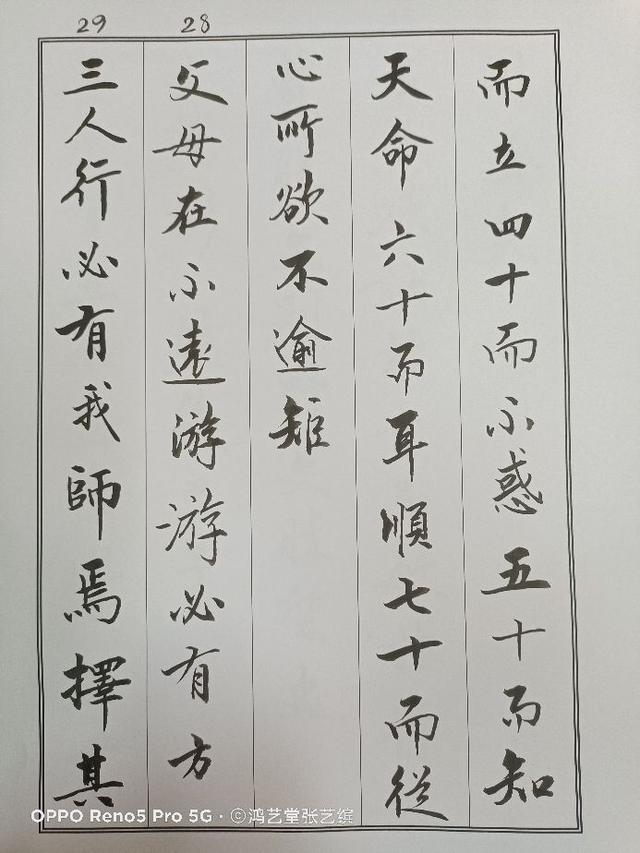 而立四十而不惑五十而知
天命六十而耳順七十而從
心所欲不逾矩
28
父母在不遠游游必有方
29
三人行必有我師焉擇其
OPPO Reno5 Pro 5G · ©鸿艺堂张艺缤